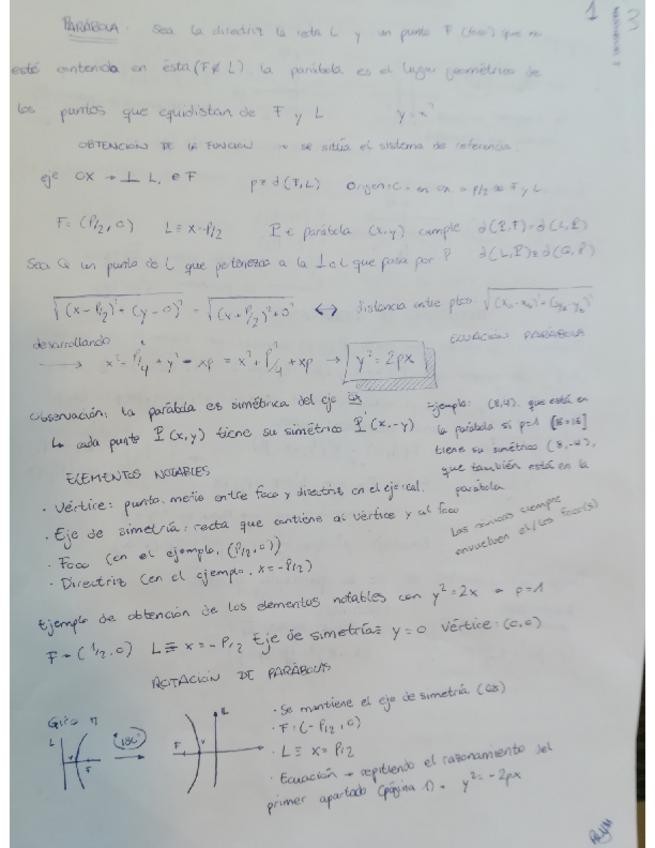 1 3
PARÁBOLA. Sea la directriz la recta L y un punto F (foco) que no
esté contenida en ésta (F∉L). la parábola es el lugar geométrico de
los puntos que equidistan de F y L y=x²
OBTENCIÓN DE LA FUNCIÓN → se sitúa el sistema de referencia.
eje OX → ⊥ L, ∈ F p = d(F,L) Origen: en OX a p/2 de F y L
F = (P/2, 0) L ≡ x=-P/2 P ∈ parábola (x,y) cumple d(P,F)=d(L,P)
Sea Q un punto de L que pertenezca a la ⊥ a L que pasa por P d(L,P)=d(Q,P)
√(x-P/2)²+(y-0)² = √(x+P/2)²+0² ↔ distancia entre ptos.
desarrollando ECUACIÓN PARÁBOLA
→ x²+P²/4+y²-xp = x²+P²/4+xp → y²=2px
Observación: la parábola es simétrica del eje OX
↳ cada punto P(x,y) tiene su simétrico P'(x,-y)
Ejemplo: (8,4), que está en
la parábola si p=1 [16=16]
tiene su simétrico (8,-4),
que también está en la
parábola
ELEMENTOS NOTABLES
· Vértice: punto medio entre foco y directriz en el eje real.
· Eje de simetría: recta que contiene al vértice y al foco
· Foco (en el ejemplo, (P/2,0))
· Directriz (en el ejemplo, x=-P/2)
Las curvas siempre
envuelven el/los foco(s)
Ejemplo de obtención de los elementos notables con y²=2x → p=1
F=(1/2,0) L≡x=-P/2 Eje de simetría≡ y=0 Vértice:(0,0)
ROTACIÓN DE PARÁBOLAS
Giro π
(180°)
L V F
F V L
· Se mantiene el eje de simetría (OX)
· F:(-P/2,0)
· L≡ x=P/2
· Ecuación → repitiendo el razonamiento del
primer apartado (página 1) → y²=-2px